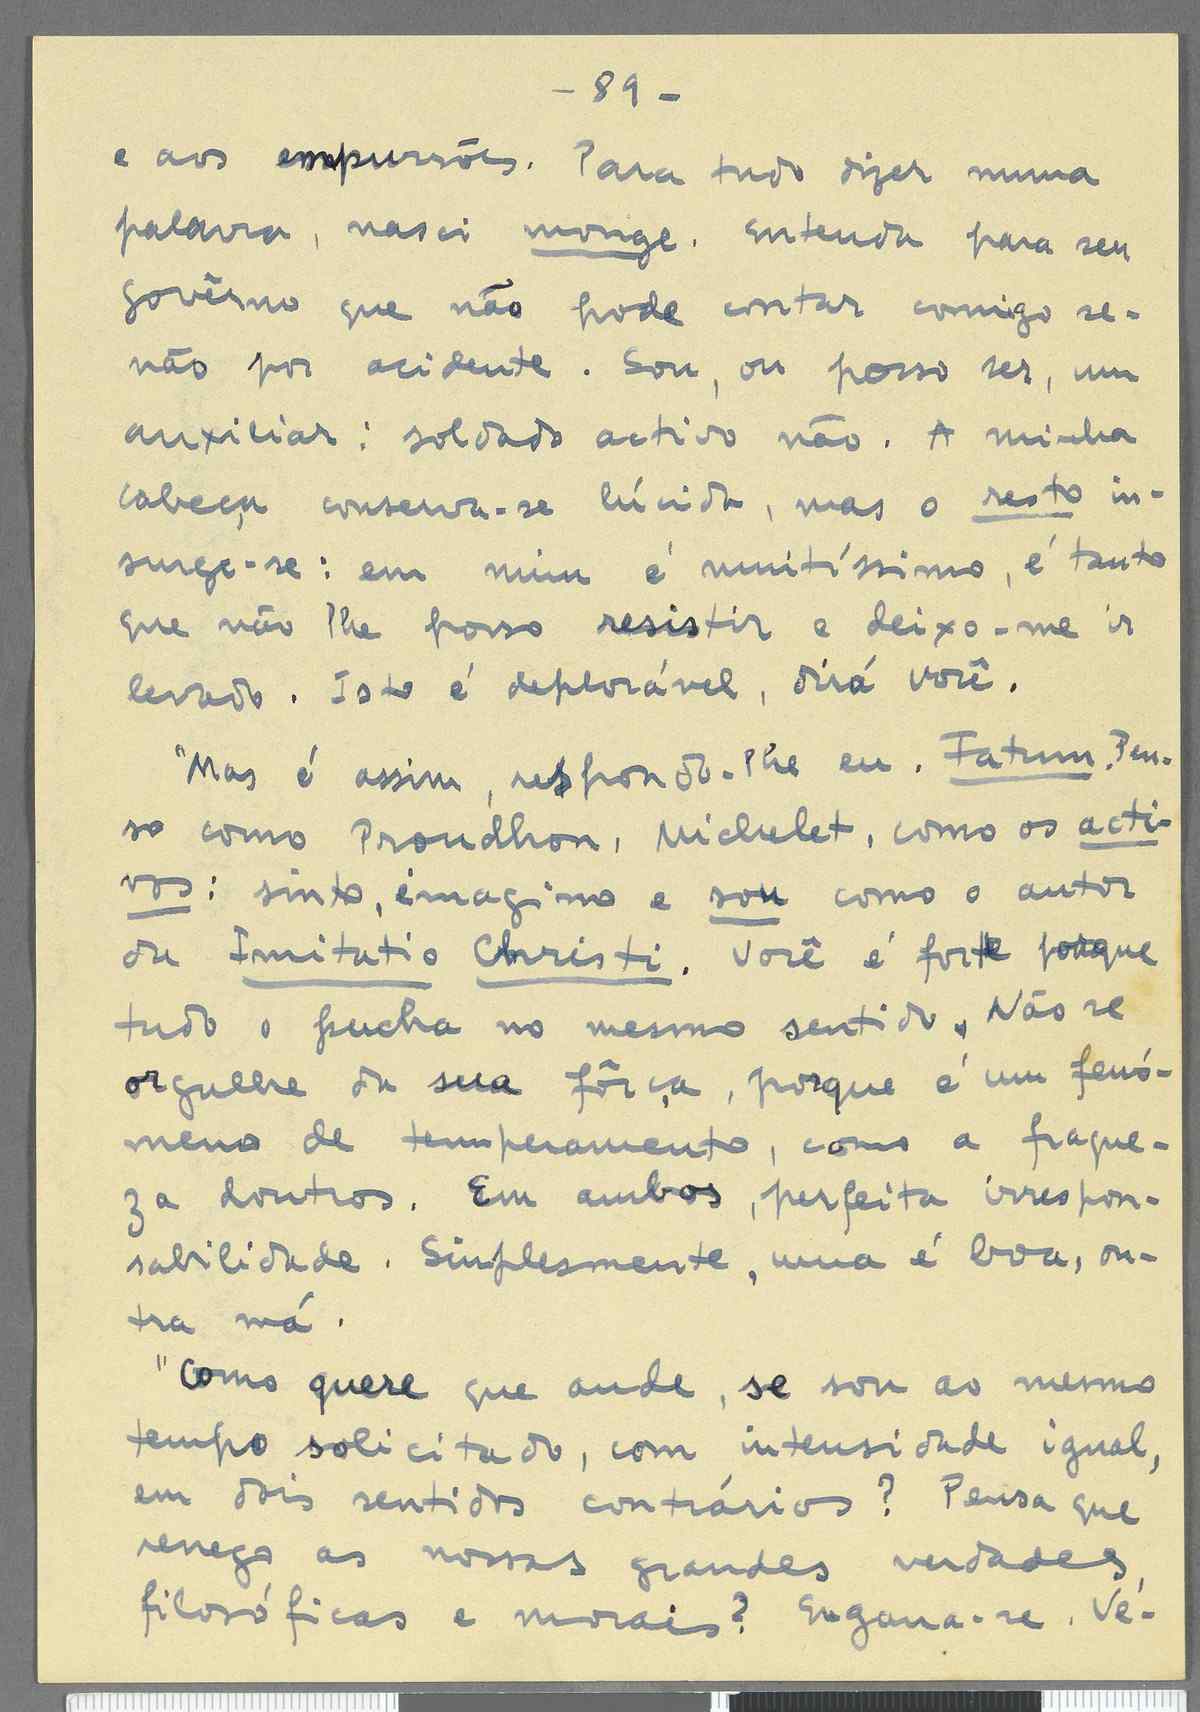 - 89 -
e aos empurrões. Para tudo dizer numa
palavra, nasci monge. Entenda para seu
govêrno que não pode contar comigo se-
não por acidente. Sou, ou posso ser, um
auxiliar: soldado activo não. A minha
cabeça conserva-se lúcida, mas o resto in-
surge-se: em mim é muitíssimo, é tanto
que não lhe posso resistir e deixo-me ir
levado. Isto é deplorável, dirá você.
"Mas é assim, respondo-lhe eu. Fatum. Pen-
so como Proudhon, Michelet, como os acti-
vos: sinto, imagino e sou como o autor
da Imitatio Christi. Você é forte porque
tudo o pucha no mesmo sentido. Não se
orgulhe da sua fôrça, porque é um fenó-
meno de temperamento, como a fraque-
za doutros. Em ambos, perfeita irrespon-
sabilidade. Simplesmente, uma é boa, ou-
tra má.
"Como quere que ande, se sou ao mesmo
tempo solicitado, com intensidade igual,
em dois sentidos contrários? Pensa que
renego as nossas grandes verdades,
filosóficas e morais? Engana-se. Vé-